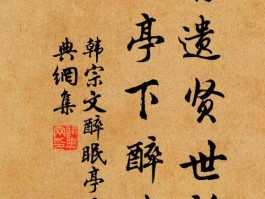 遗贤世
亭下醉
韩宗文醉眠亭
典網集